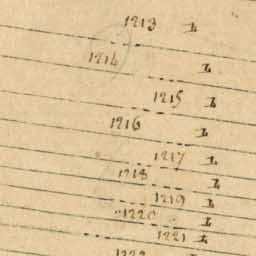 1213 L
1214 L
1215 L
1216 L
1217 L
1218 L
1219 L
1220 L
1221 L
1222